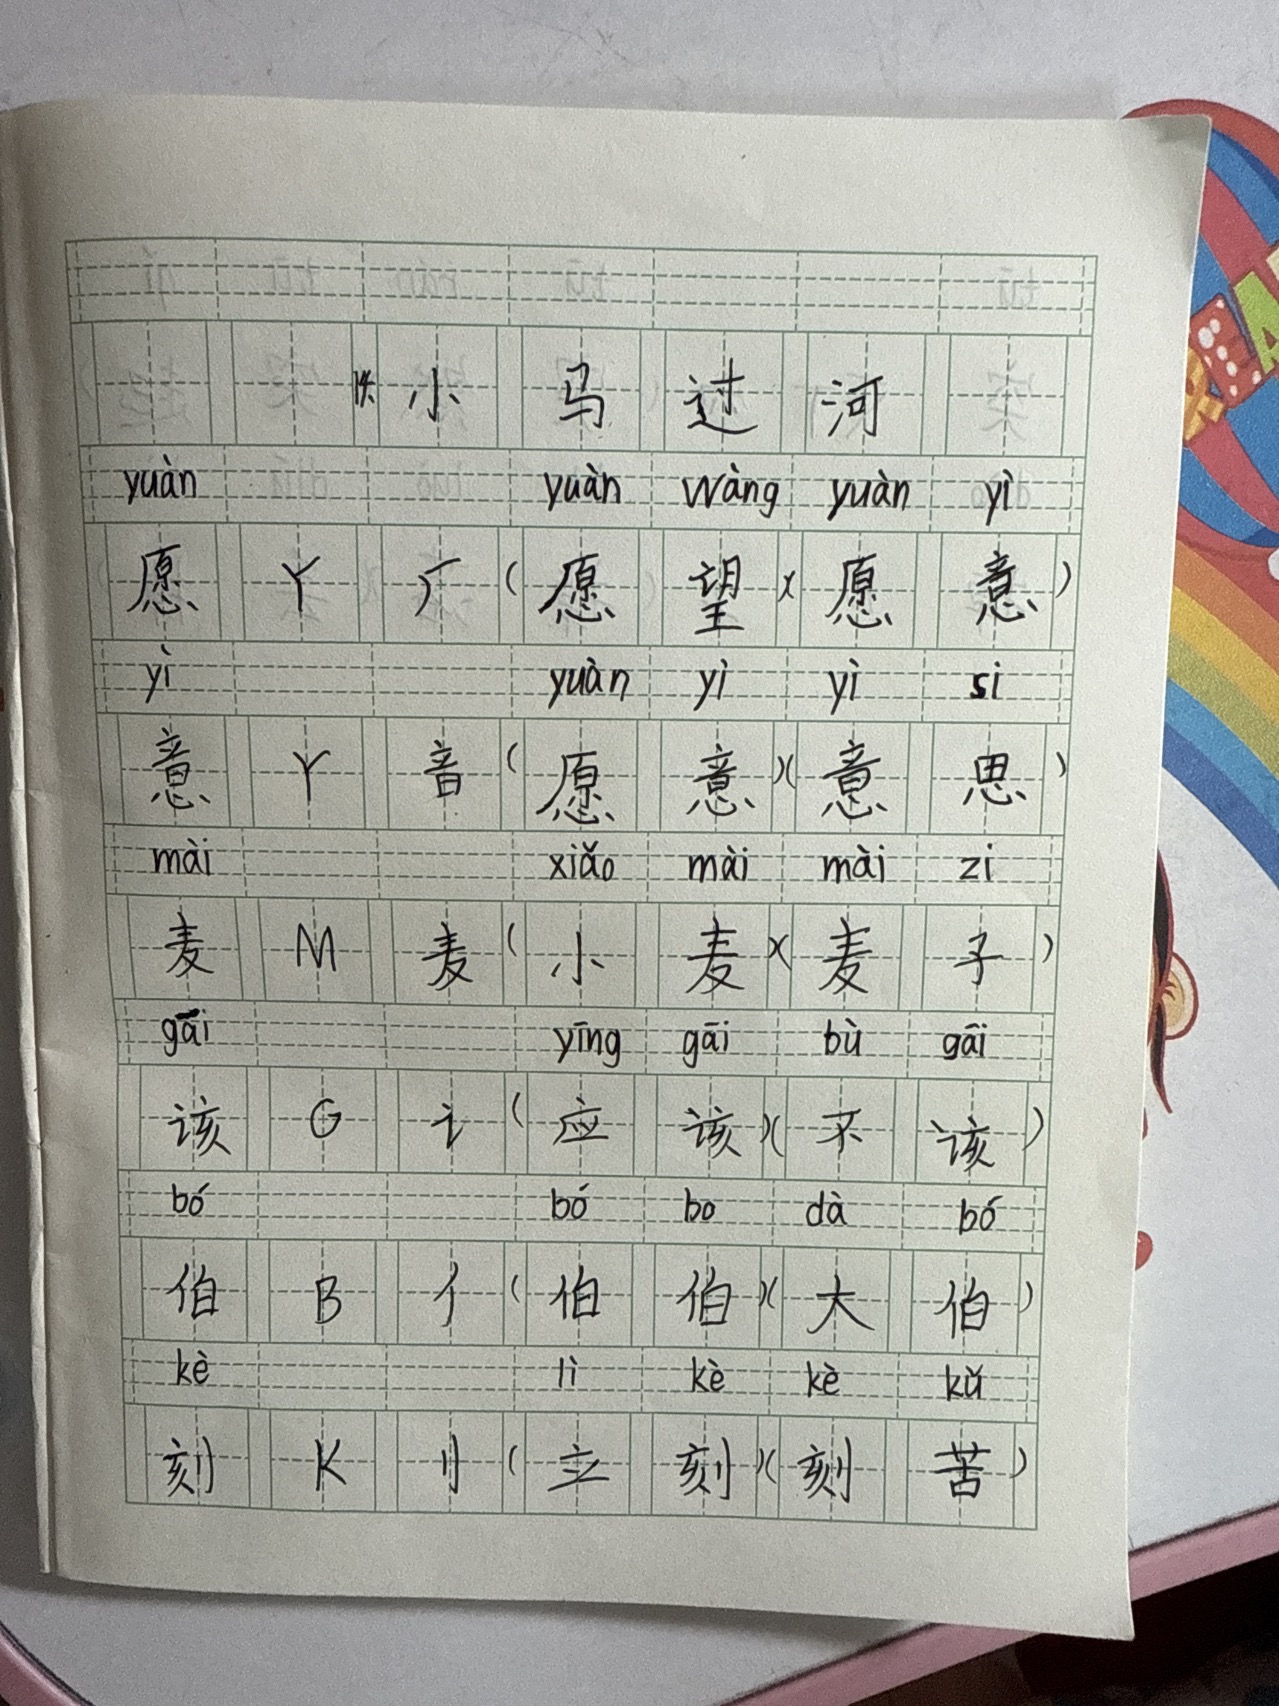 14.小马过河
yuàn yuàn wàng yuàn yì
愿 Y 厂 (愿望)(愿意)
yì yuàn yì yì si
意 Y 音 (愿意)(意思)
mài xiǎo mài mài zi
麦 M 麦 (小麦)(麦子)
gāi yīng gāi bù gāi
该 G 讠 (应该)(不该)
bó bó bo dà bó
伯 B 亻 (伯伯)(大伯)
kè lì kè kè kǔ
刻 K 刂 (立刻)(刻苦)